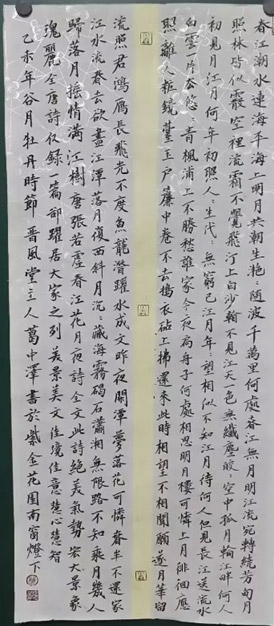 春江潮水連海平海上明月共朝生艳々随波千萬里何處春江無月明江流宛轉繞芳甸月
照林皆似霰空裡流霜不覺飛汀上白沙翰不見江天一色無纖塵皎々空中孤月輪江畔何人
初見月江月何年初照人々生代々無窮已江月年々望相似不知江月待何人但見長江送流水
白雲一片去悠々青楓浦上不勝愁誰家今夜扁舟子何處相思明月樓可憐上月徘徊應
照離人粧鏡臺玉户簾中卷不去搗衣砧上拂還来此時相望不相聞願遂月華留
流照君鴻雁長飛光不度魚龍潛躍水成文昨夜閑潭夢落花可憐春半不還家
江水流春去欲盡江潭落月復西斜月沉々藏海霧碣石瀟湘無限路不知乘月幾人
歸落月摇情滿江樹 唐張若虛春江花月夜詩全文此詩絕美氣勢宏大景象
瑰麗全唐詩仅錄二篇部躍居大家之列 美景美文佳境佳意慧心慧智
己未年谷月牡丹時節 晋風堂主人葛中澤書於紫金花園南窗燈下